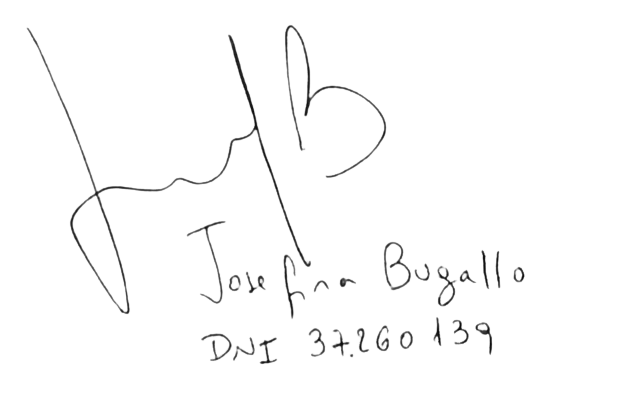 Josefina Bugallo
DNI 37.260 139